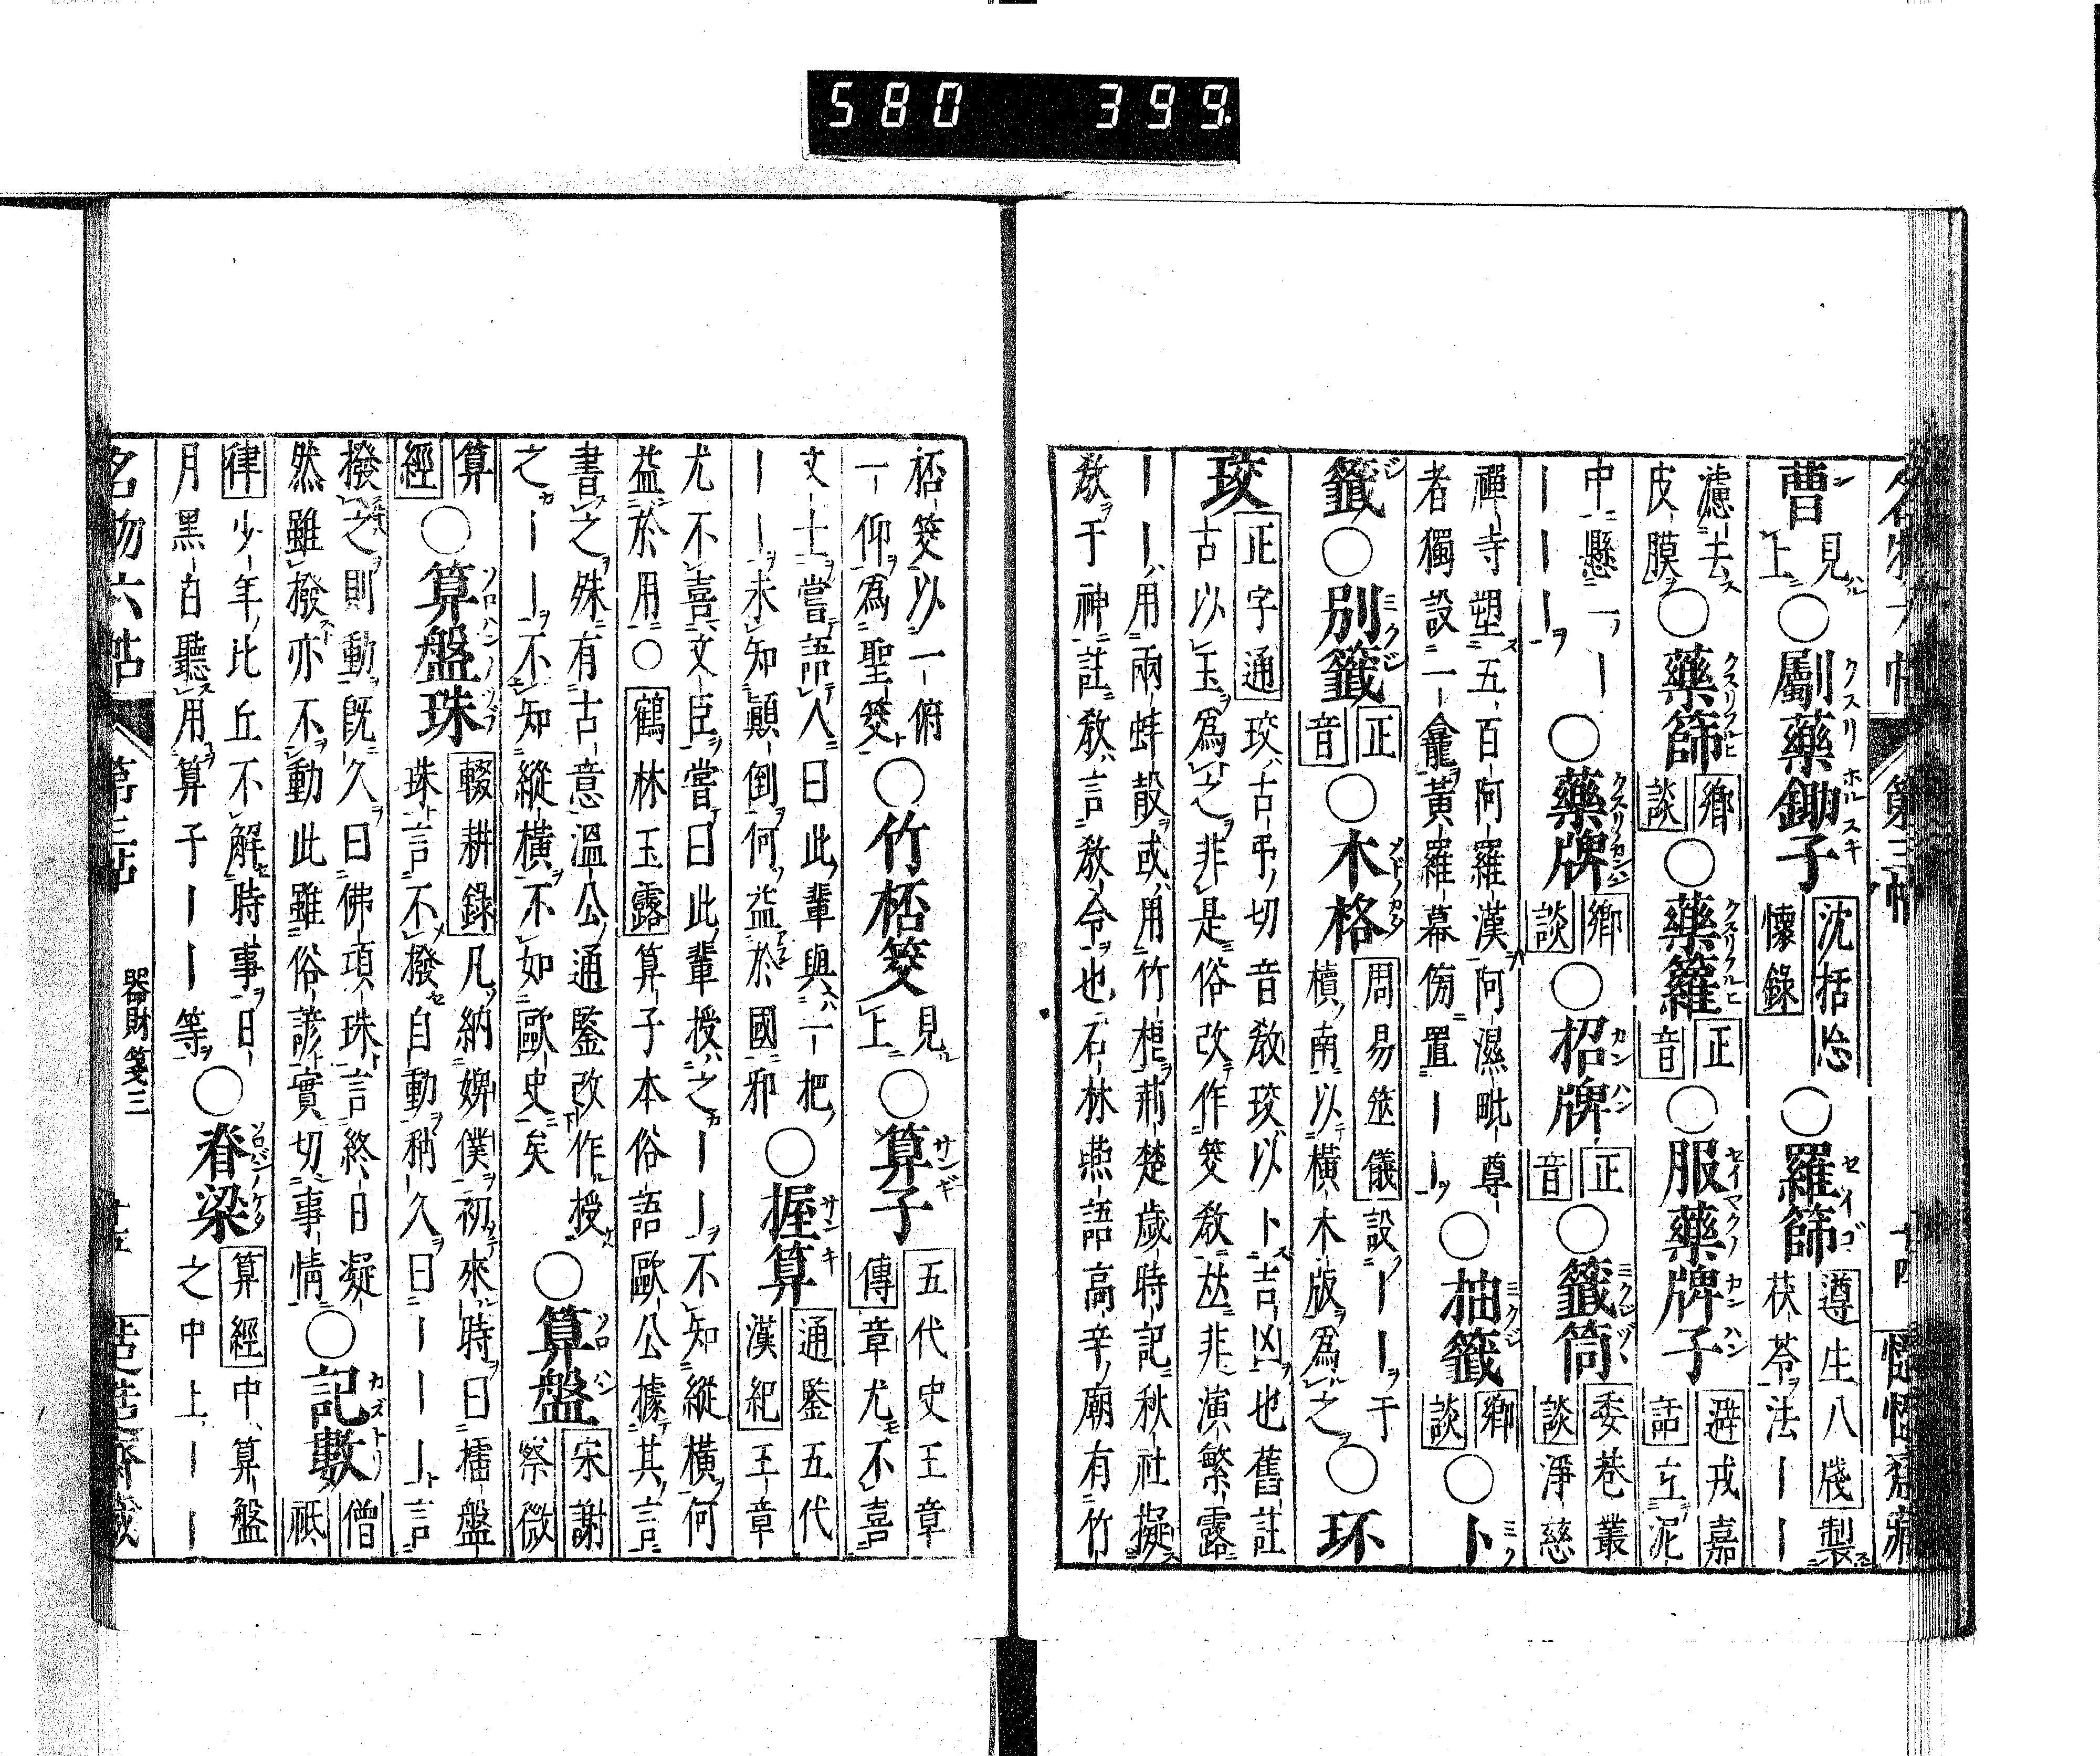 580 399
曹 見上 ○ 劚藥鋤子 沈括忘懷錄 ○ 羅篩 遵生八牋 製茯苓法｜｜
濾去皮膜 ○ 藥篩 鄕談 ○ 藥籮 正音 ○ 服藥牌子 避戎嘉話 立泥
中懸一｜｜｜｜ ○ 藥牌 鄕談 ○ 招牌 正音 ○ 籤筒 委巷叢談 淨慈
禪寺塑五百阿羅漢阿濕毗尊者獨設一龕黃羅幕傍置｜｜ ○ 抽籤 鄕談 ○ 卜
籤 ○ 別籤 正音 ○ 木格 周易筮儀 設｜｜于櫝南以橫木版爲之 ○ 环
珓 正字通 珓古弔切音教珓以卜吉凶也舊註古以玉爲之非是俗改作筊教𠀤非演繁露
｜｜用兩蚌殼或用竹根荊楚歲時記秋社擬教于神註教言教令也石林燕語高辛廟有竹
桮筊以一俯一仰爲聖筊 ○ 竹桮筊 見上 ○ 算子 五代史王章傳 章尤不喜
文士嘗語人曰此輩與一把｜｜未知顚倒何益於國邪 ○ 握算 通鑒五代漢紀 王章
尤不喜文臣嘗曰此輩授之｜｜不知縱橫何益於用 ○ 鶴林玉露 算子本俗語歐公據其言
書之殊有古意溫公通鑒改作授之｜｜不知縱橫不如歐史矣 ○ 算盤 宋謝察微
算經 ○ 算盤珠 輟耕錄 凡納婢僕初來時曰擂盤珠言不撥自動稍久曰｜｜｜言
撥之則動旣久曰佛項珠言終日凝然雖撥亦不動此雖俗諺實切事情 ○ 記數 僧祇
律 少年比丘不解時事日月黑白聽用算子｜｜等 ○ 脊梁 算經 中算盤之中上｜｜
名物六帖 第三帖 器財箋三 十五